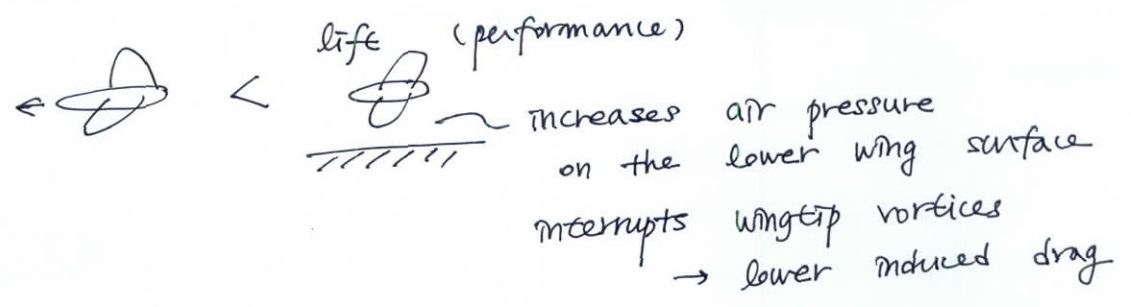 lift (performance)
<
increases air pressure
on the lower wing surface
interrupts wingtip vortices
→ lower induced drag